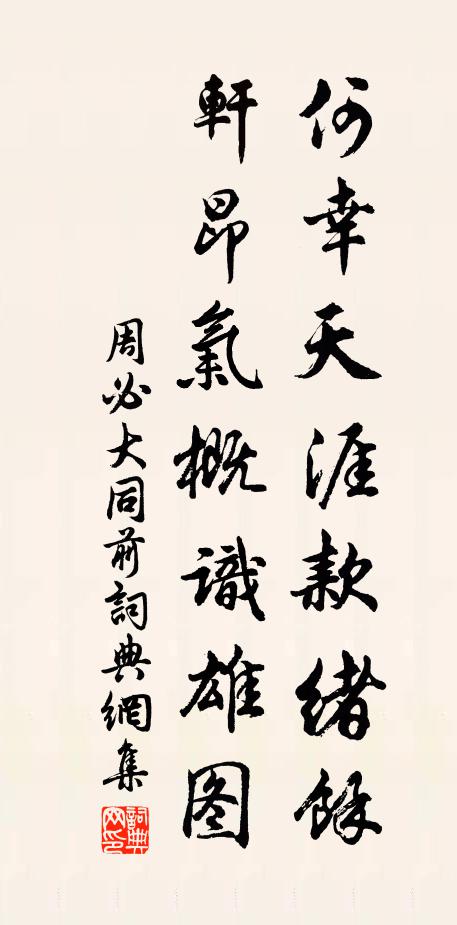 何幸天涯款緒餘
軒昂氣概識雄图
周必大同前詞典網集
詞典網印